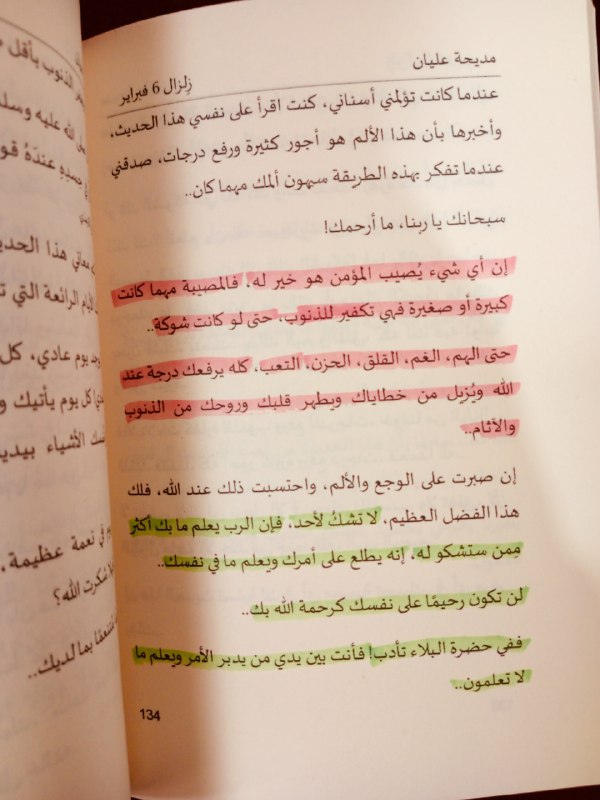 مديحة عليان
زِلزال 6 فبراير
عندما كانت تؤلمني أسناني، كنت اقرأ على نفسي هذا الحديث،
وأخبرها بأن هذا الألم هو أجور كثيرة ورفع درجات، صدقني
عندما تفكر بهذه الطريقة سيهون ألمك مهما كان..
سبحانك يا ربنا، ما أرحمك!
إن أي شيء يُصيب المؤمن هو خير له، فالمصيبة مهما كانت
كبيرة أو صغيرة فهي تكفير للذنوب، حتى لو كانت شوكة..
حتى الهم، الغم، القلق، الحزن، التعب، كله يرفعك درجة عند
الله ويُزيل من خطاياك ويطهر قلبك وروحك من الذنوب
والآثام..
إن صبرت على الوجع والألم، واحتسبت ذلك عند الله، فلك
هذا الفضل العظيم، لا تشكُ لأحد، فإن الرب يعلم ما بك أكثر
مِمن ستشكو له، إنه يطلع على أمرك ويعلم ما في نفسك..
لن تكون رحيمًا على نفسك كرحمة الله بك..
ففي حضرة البلاء تأدب! فأنت بين يدي من يدبر الأمر ويعلم ما
لا تعلمون..
134
الذنوب بأقل
الله عليه وسل
جسدِهِ عندَهُ قو
معاني هذا الحدي
الأيام الرائعة التي ت
يوم عادي، كل
كل يوم يأتيك و
الأشياء بيدي
في نعمة عظيمة،
شكرت الله؟
بما لديك..